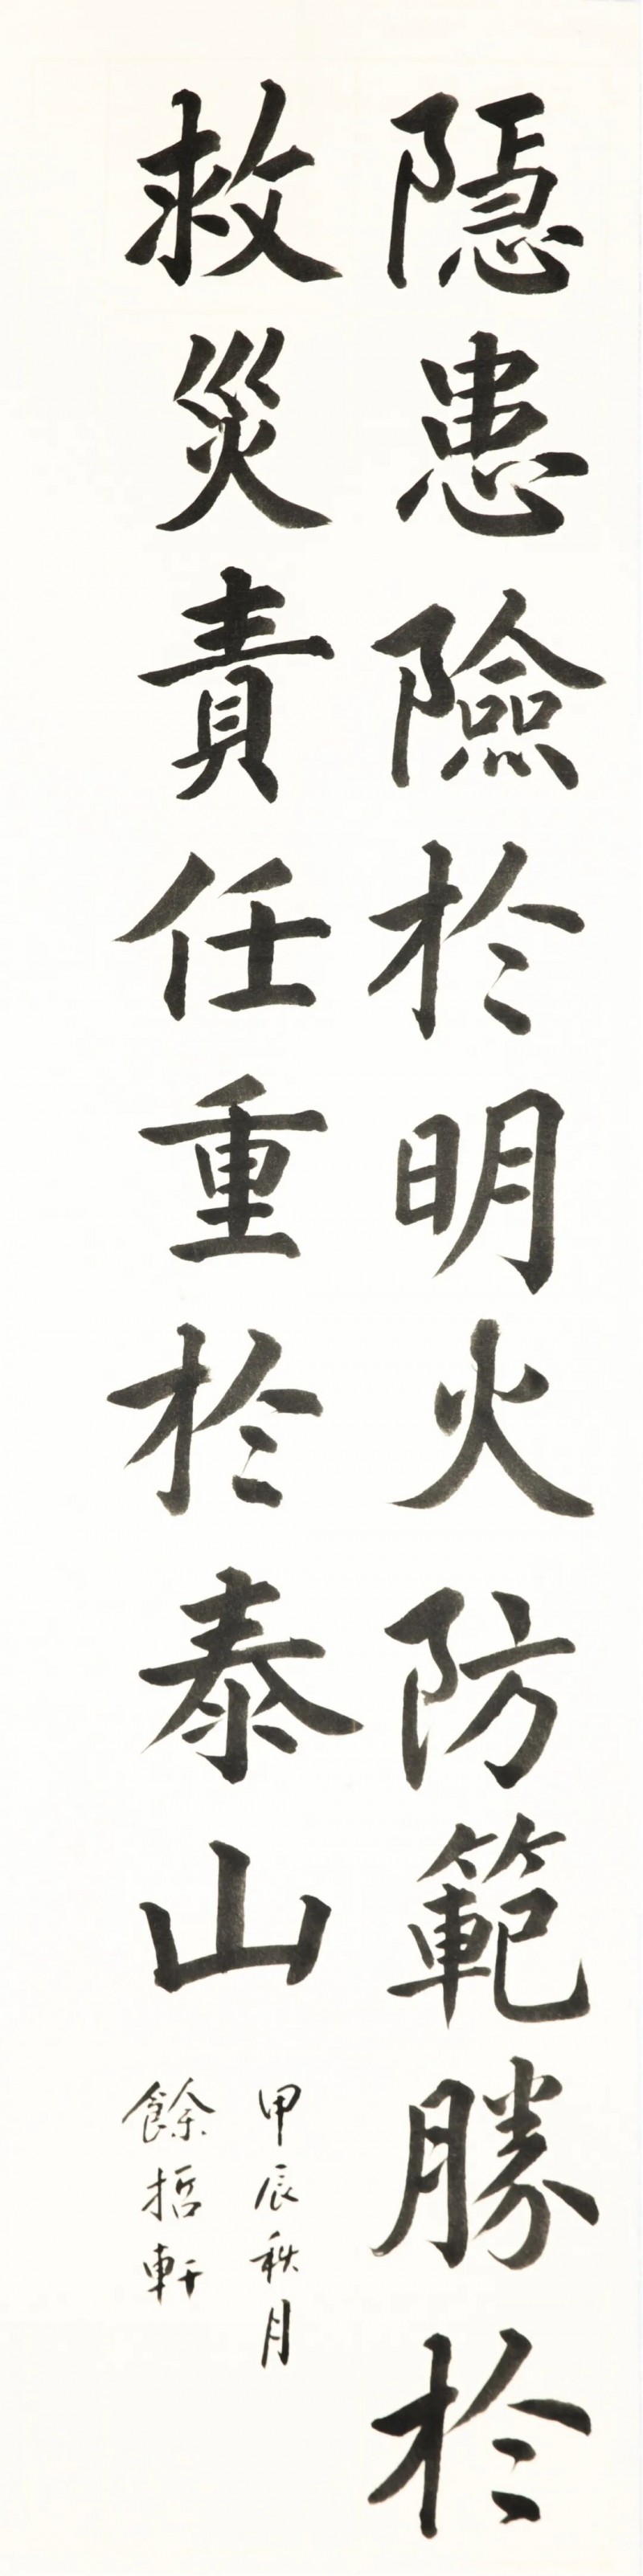 隱患險於明火防範勝於
救災責任重於泰山
甲辰秋月
餘哲軒